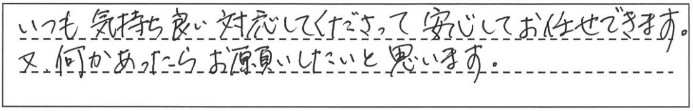 いつも気持ち良い対応してくださって安心してお任せできます。
又、何かあったらお願いしたいと思います。